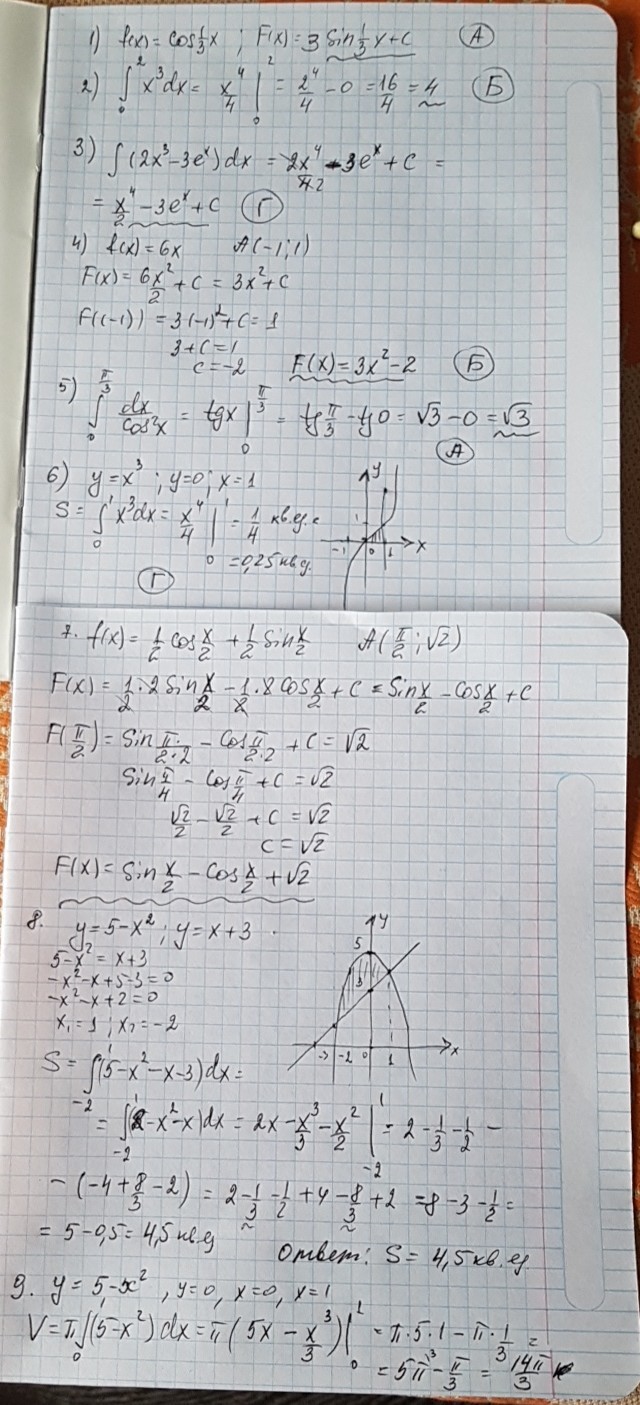 1) f(x) = cos 1/3 x ; F(x) = 3 sin 1/3 x + C (А)
2) ∫₀² x³dx = x⁴/4 |₀² = 2⁴/4 - 0 = 16/4 = 4 (Б)
3) ∫(2x³ - 3eˣ)dx = 2x⁴/4·2 - 3eˣ + C =
= x⁴/2 - 3eˣ + C (Г)
4) f(x) = 6x A(-1; 1)
F(x) = 6x²/2 + C = 3x² + C
F((-1)) = 3(-1)² + C = 1
3 + C = 1
C = -2 F(x) = 3x² - 2 (Б)
5) ∫₀^π/3 dx/cos²x = tgx |₀^π/3 = tg π/3 - tg 0 = √3 - 0 = √3
(А)
6) y = x³ ; y = 0 ; x = 1
S = ∫₀¹ x³dx = x⁴/4 |₀¹ = 1/4 кв.ед. =
= 0,25 кв.ед.
(Г)
y
1
-1 0 1 x
7. f(x) = 1/2 cos x/2 + 1/2 sin x/2 A(π/2 ; √2)
F(x) = 1/2 · 2 sin x/2 - 1/2 · 2 cos x/2 + C = sin x/2 - cos x/2 + C
F(π/2) = sin π/2·2 - cos π/2·2 + C = √2
sin π/4 - cos π/4 + C = √2
√2/2 - √2/2 + C = √2
C = √2
F(x) = sin x/2 - cos x/2 + √2
8. y = 5 - x² ; y = x + 3
5 - x² = x + 3
-x² - x + 5 - 3 = 0
-x² - x + 2 = 0
x₁ = 1 ; x₂ = -2
y
5
3
-3 -2 0 1 x
S = ∫₋₂¹ (5 - x² - x - 3)dx =
= ∫₋₂¹ (2 - x² - x)dx = 2x - x³/3 - x²/2 |₋₂¹ = 2 - 1/3 - 1/2 -
- (-4 + 8/3 - 2) = 2 - 1/3 - 1/2 + 4 - 8/3 + 2 = 8 - 3 - 1/2 =
= 5 - 0,5 = 4,5 кв.ед
Ответ: S = 4,5 кв.ед
9. y = 5 - x² , y = 0, x = 0, x = 1
V = π∫₀¹ (5 - x²)dx = π(5x - x³/3)|₀¹ = π·5·1 - π·1/3 =
= 5π - π/3 = 14π/3